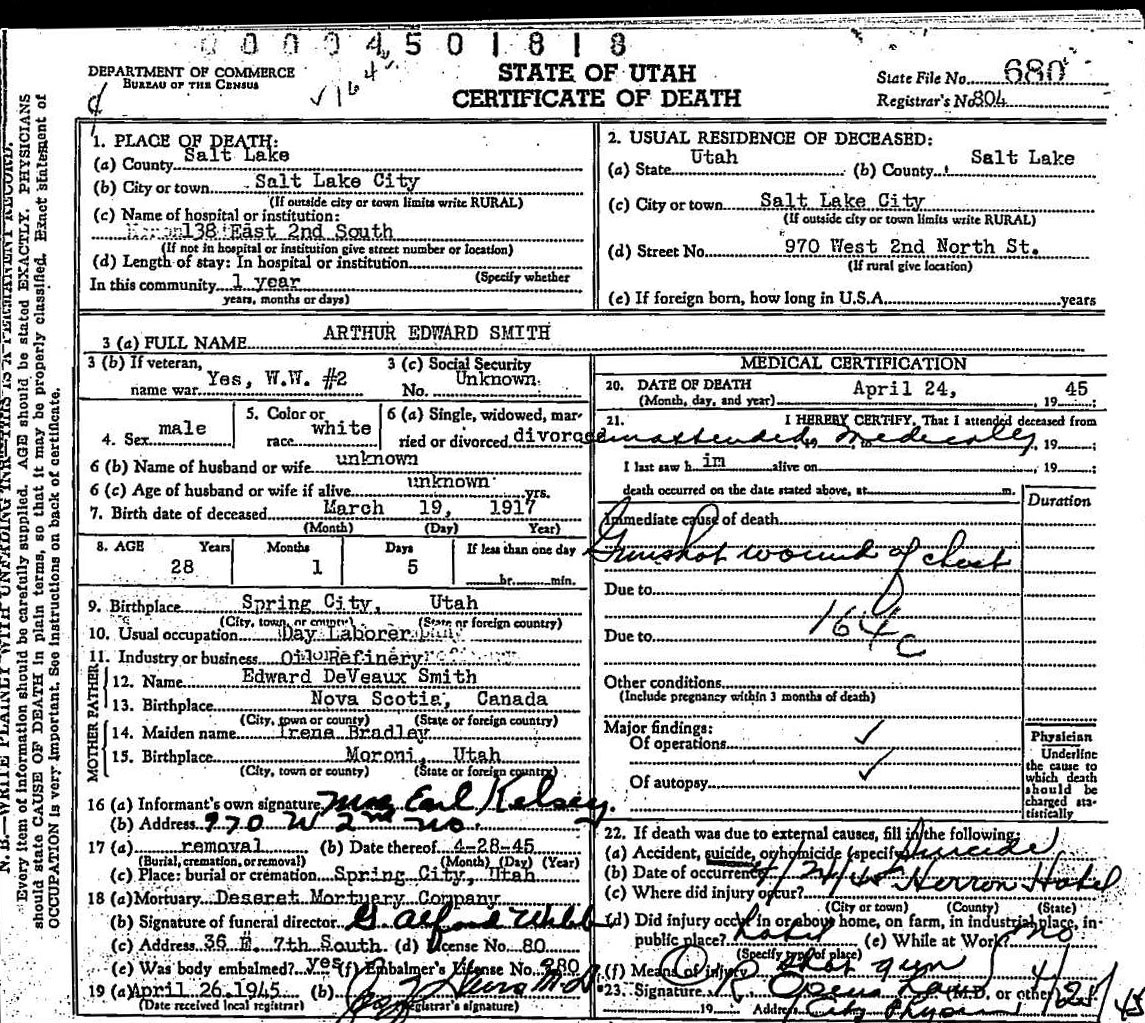 0 0 0 0 4 5 0 1 8 1 8
DEPARTMENT OF COMMERCE
BUREAU OF THE CENSUS
STATE OF UTAH
CERTIFICATE OF DEATH
State File No. 680
Registrar's No 804
N. B.—WRITE PLAINLY WITH UNFADING INK—THIS IS A PERMANENT RECORD.
Every item of information should be carefully supplied. AGE should be stated EXACTLY. PHYSICIANS
should state CAUSE OF DEATH in plain terms, so that it may be properly classified. Exact statement of
OCCUPATION is very important. See instructions on back of certificate.
1. PLACE OF DEATH:
(a) County Salt Lake
(b) City or town Salt Lake City
(If outside city or town limits write RURAL)
(c) Name of hospital or institution:
138 East 2nd South
(If not in hospital or institution give street number or location)
(d) Length of stay: In hospital or institution
(Specify whether
In this community 1 year
years, months or days)
2. USUAL RESIDENCE OF DECEASED:
(a) State Utah (b) County Salt Lake
(c) City or town Salt Lake City
(If outside city or town limits write RURAL)
(d) Street No. 970 West 2nd North St.
(If rural give location)
(e) If foreign born, how long in U.S.A. years
3 (a) FULL NAME ARTHUR EDWARD SMITH
3 (b) If veteran,
name war Yes, W.W. #2
3 (c) Social Security
No. Unknown
4. Sex male
5. Color or
race white
6 (a) Single, widowed, mar-
ried or divorced divorced
6 (b) Name of husband or wife unknown
6 (c) Age of husband or wife if alive unknown yrs.
7. Birth date of deceased March 19, 1917
(Month) (Day) Year)
8. AGE Years Months Days If less than one day
28 1 5 hr. min.
9. Birthplace Spring City, Utah
(City, town, or county) (State or foreign country)
10. Usual occupation Day Laborer
11. Industry or business Oil Refinery
FATHER
12. Name Edward DeVeaux Smith
13. Birthplace Nova Scotia, Canada
(City, town or county) (State or foreign country)
MOTHER
14. Maiden name Irene Bradley
15. Birthplace Moroni, Utah
(City, town or county) (State or foreign country)
16 (a) Informant's own signature Mrs Earl Kelsey.
(b) Address 970 W 2nd No.
17 (a) removal (b) Date thereof 4-28-45
(Burial, cremation, or removal) (Month) (Day) (Year)
(c) Place: burial or cremation Spring City, Utah
18 (a) Mortuary Deseret Mortuary Company
(b) Signature of funeral director
(c) Address 36 E. 7th South (d) License No. 80
(e) Was body embalmed? yes (f) Embalmer's License No.
19 (a) April 26, 1945 (b)
(Date received local registrar) Registrar's signature)
MEDICAL CERTIFICATION
20. DATE OF DEATH
(Month, day, and year) April 24, 19 45
21. I HEREBY CERTIFY, That I attended deceased from
unattended medically, 19
I last saw h im alive on , 19 ;
death occurred on the date stated above, at m.
Duration
Immediate cause of death
Gunshot wound of chest
Due to
164c
Due to
Other conditions
(Include pregnancy within 3 months of death)
Major findings:
Of operations ✓
Of autopsy ✓
Physician
Underline
the cause to
which death
should be
charged sta-
tistically
22. If death was due to external causes, fill in the following:
(a) Accident, suicide, or homicide (specify) Suicide
(b) Date of occurrence
(c) Where did injury occur? Herron Hotel
(City or town) (County) (State)
(d) Did injury occur in or about home, on farm, in industrial place, in
public place? hotel (e) While at Work no
(Specify type of place)
(f) Means of injury shot gun
23. Signature (M.D. or other)
19 Address City Physician